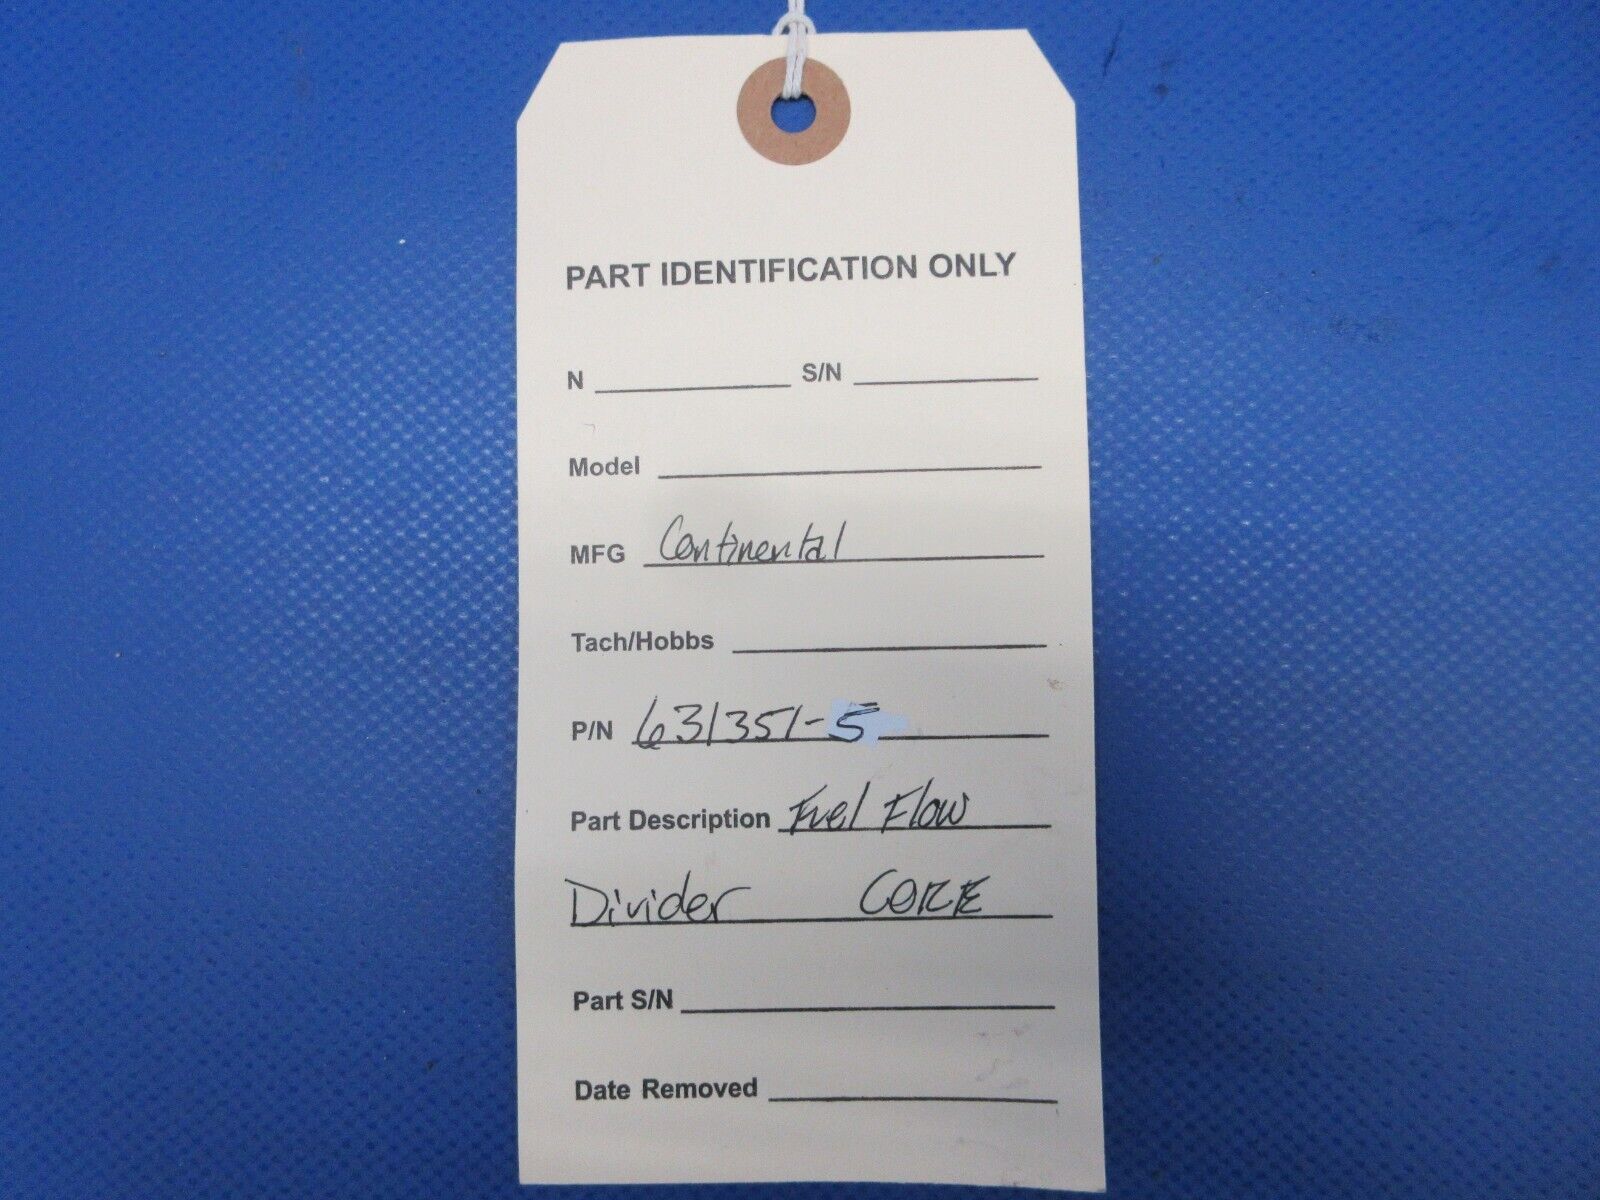 PART IDENTIFICATION ONLY
N S/N
Model
MFG Continental
Tach/Hobbs
P/N 631351-5
Part Description Fuel Flow
Divider CORE
Part S/N
Date Removed